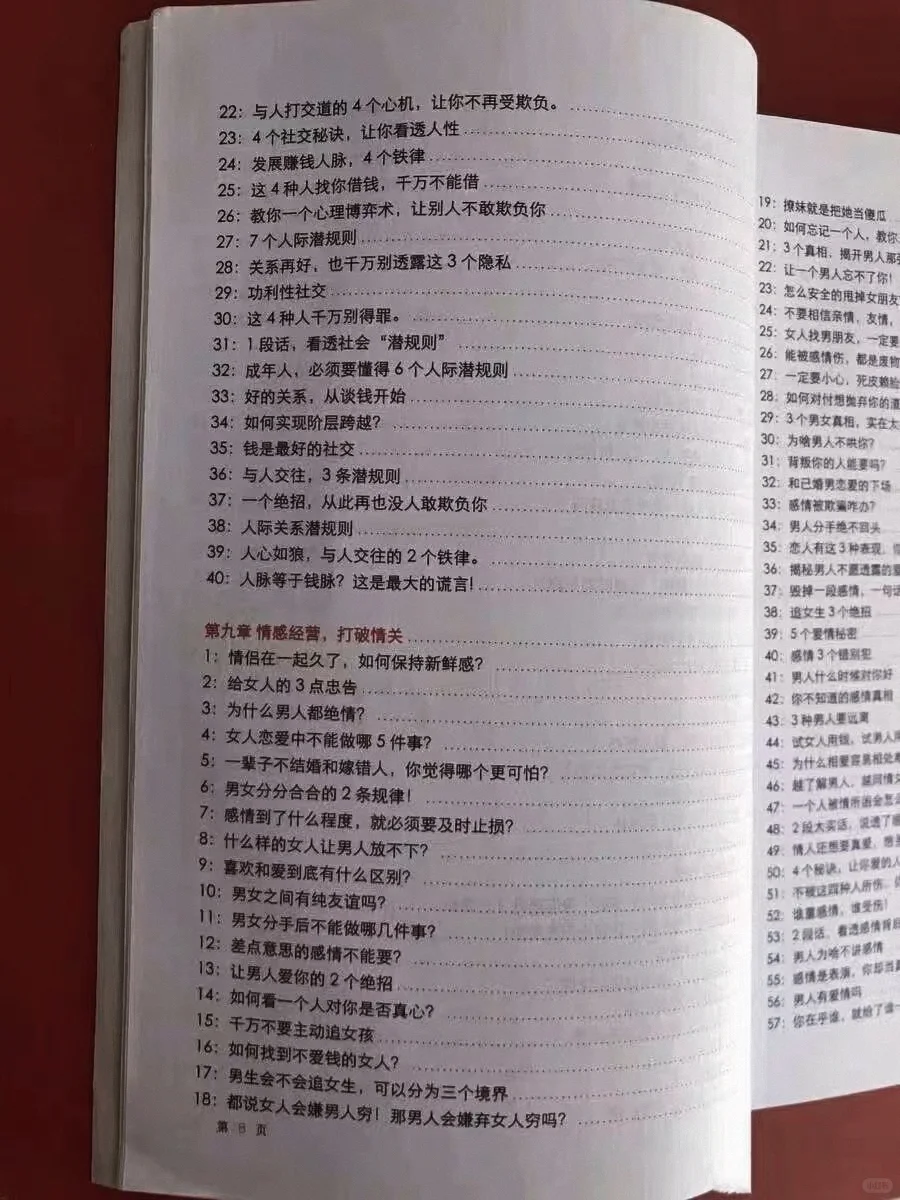 22：与人打交道的 4 个心机，让你不再受欺负。
23：4 个社交秘诀，让你看透人性
24：发展赚钱人脉，4 个铁律
25：这 4 种人找你借钱，千万不能借
26：教你一个心理博弈术，让别人不敢欺负你
27：7 个人际潜规则
28：关系再好，也千万别透露这 3 个隐私
29：功利性社交
30：这 4 种人千万别得罪。
31：1 段话，看透社会“潜规则”
32：成年人，必须要懂得 6 个人际潜规则
33：好的关系，从谈钱开始
34：如何实现阶层跨越？
35：钱是最好的社交
36：与人交往，3 条潜规则
37：一个绝招，从此再也没人敢欺负你
38：人际关系潜规则
39：人心如狼，与人交往的 2 个铁律。
40：人脉等于钱脉？这是最大的谎言！
第九章 情感经营，打破情关
1：情侣在一起久了，如何保持新鲜感？
2：给女人的 3 点忠告
3：为什么男人都绝情？
4：女人恋爱中不能做哪 5 件事？
5：一辈子不结婚和嫁错人，你觉得哪个更可怕？
6：男女分分合合的 2 条规律！
7：感情到了什么程度，就必须要及时止损？
8：什么样的女人让男人放不下？
9：喜欢和爱到底有什么区别？
10：男女之间有纯友谊吗？
11：男女分手后不能做哪几件事？
12：差点意思的感情不能要？
13：让男人爱你的 2 个绝招
14：如何看一个人对你是否真心？
15：千万不要主动追女孩
16：如何找到不爱钱的女人？
17：男生会不会追女生，可以分为三个境界
18：都说女人会嫌男人穷！那男人会嫌弃女人穷吗？
第 8 页
19：撩妹就是把她当傻瓜
20：如何忘记一个人，教你
21：3 个真相，揭开男人那
22：让一个男人忘不了你！
23：怎么安全的甩掉女朋友
24：不要相信亲情，友情，
25：女人找男朋友，一定要
26：能被感情伤，都是废物
27：一定要小心，死皮赖脸
28：如何对付想抛弃你的渣
29：3 个男女真相，实在太
30：为啥男人不哄你？
31：背叛你的人能要吗？
32：和已婚男恋爱的下场
33：感情被欺骗咋办？
34：男人分手绝不回头
35：恋人有这 3 种表现，
36：揭秘男人不愿透露的
37：毁掉一段感情，一句话
38：追女生 3 个绝招
39：5 个爱情秘密
40：感情 3 个错别犯
41：男人什么时候对你好
42：你不知道的感情真相
43：3 种男人要远离
44：试女人用钱，试男人用
45：为什么相爱容易相处难
46：越了解男人，越
47：一个人被情所困会怎么
48：2 段大实话，说透了
49：情人还想要真爱，
50：4 个秘诀，让你爱的人
51：不被这四种人所伤，
52：谁重感情，谁受伤！
53：2 段话，看透感情背后
54：男人为啥不讲感情
55：感情是表演，你却当真
56：男人有爱情吗
57：你在乎谁，就给了谁一